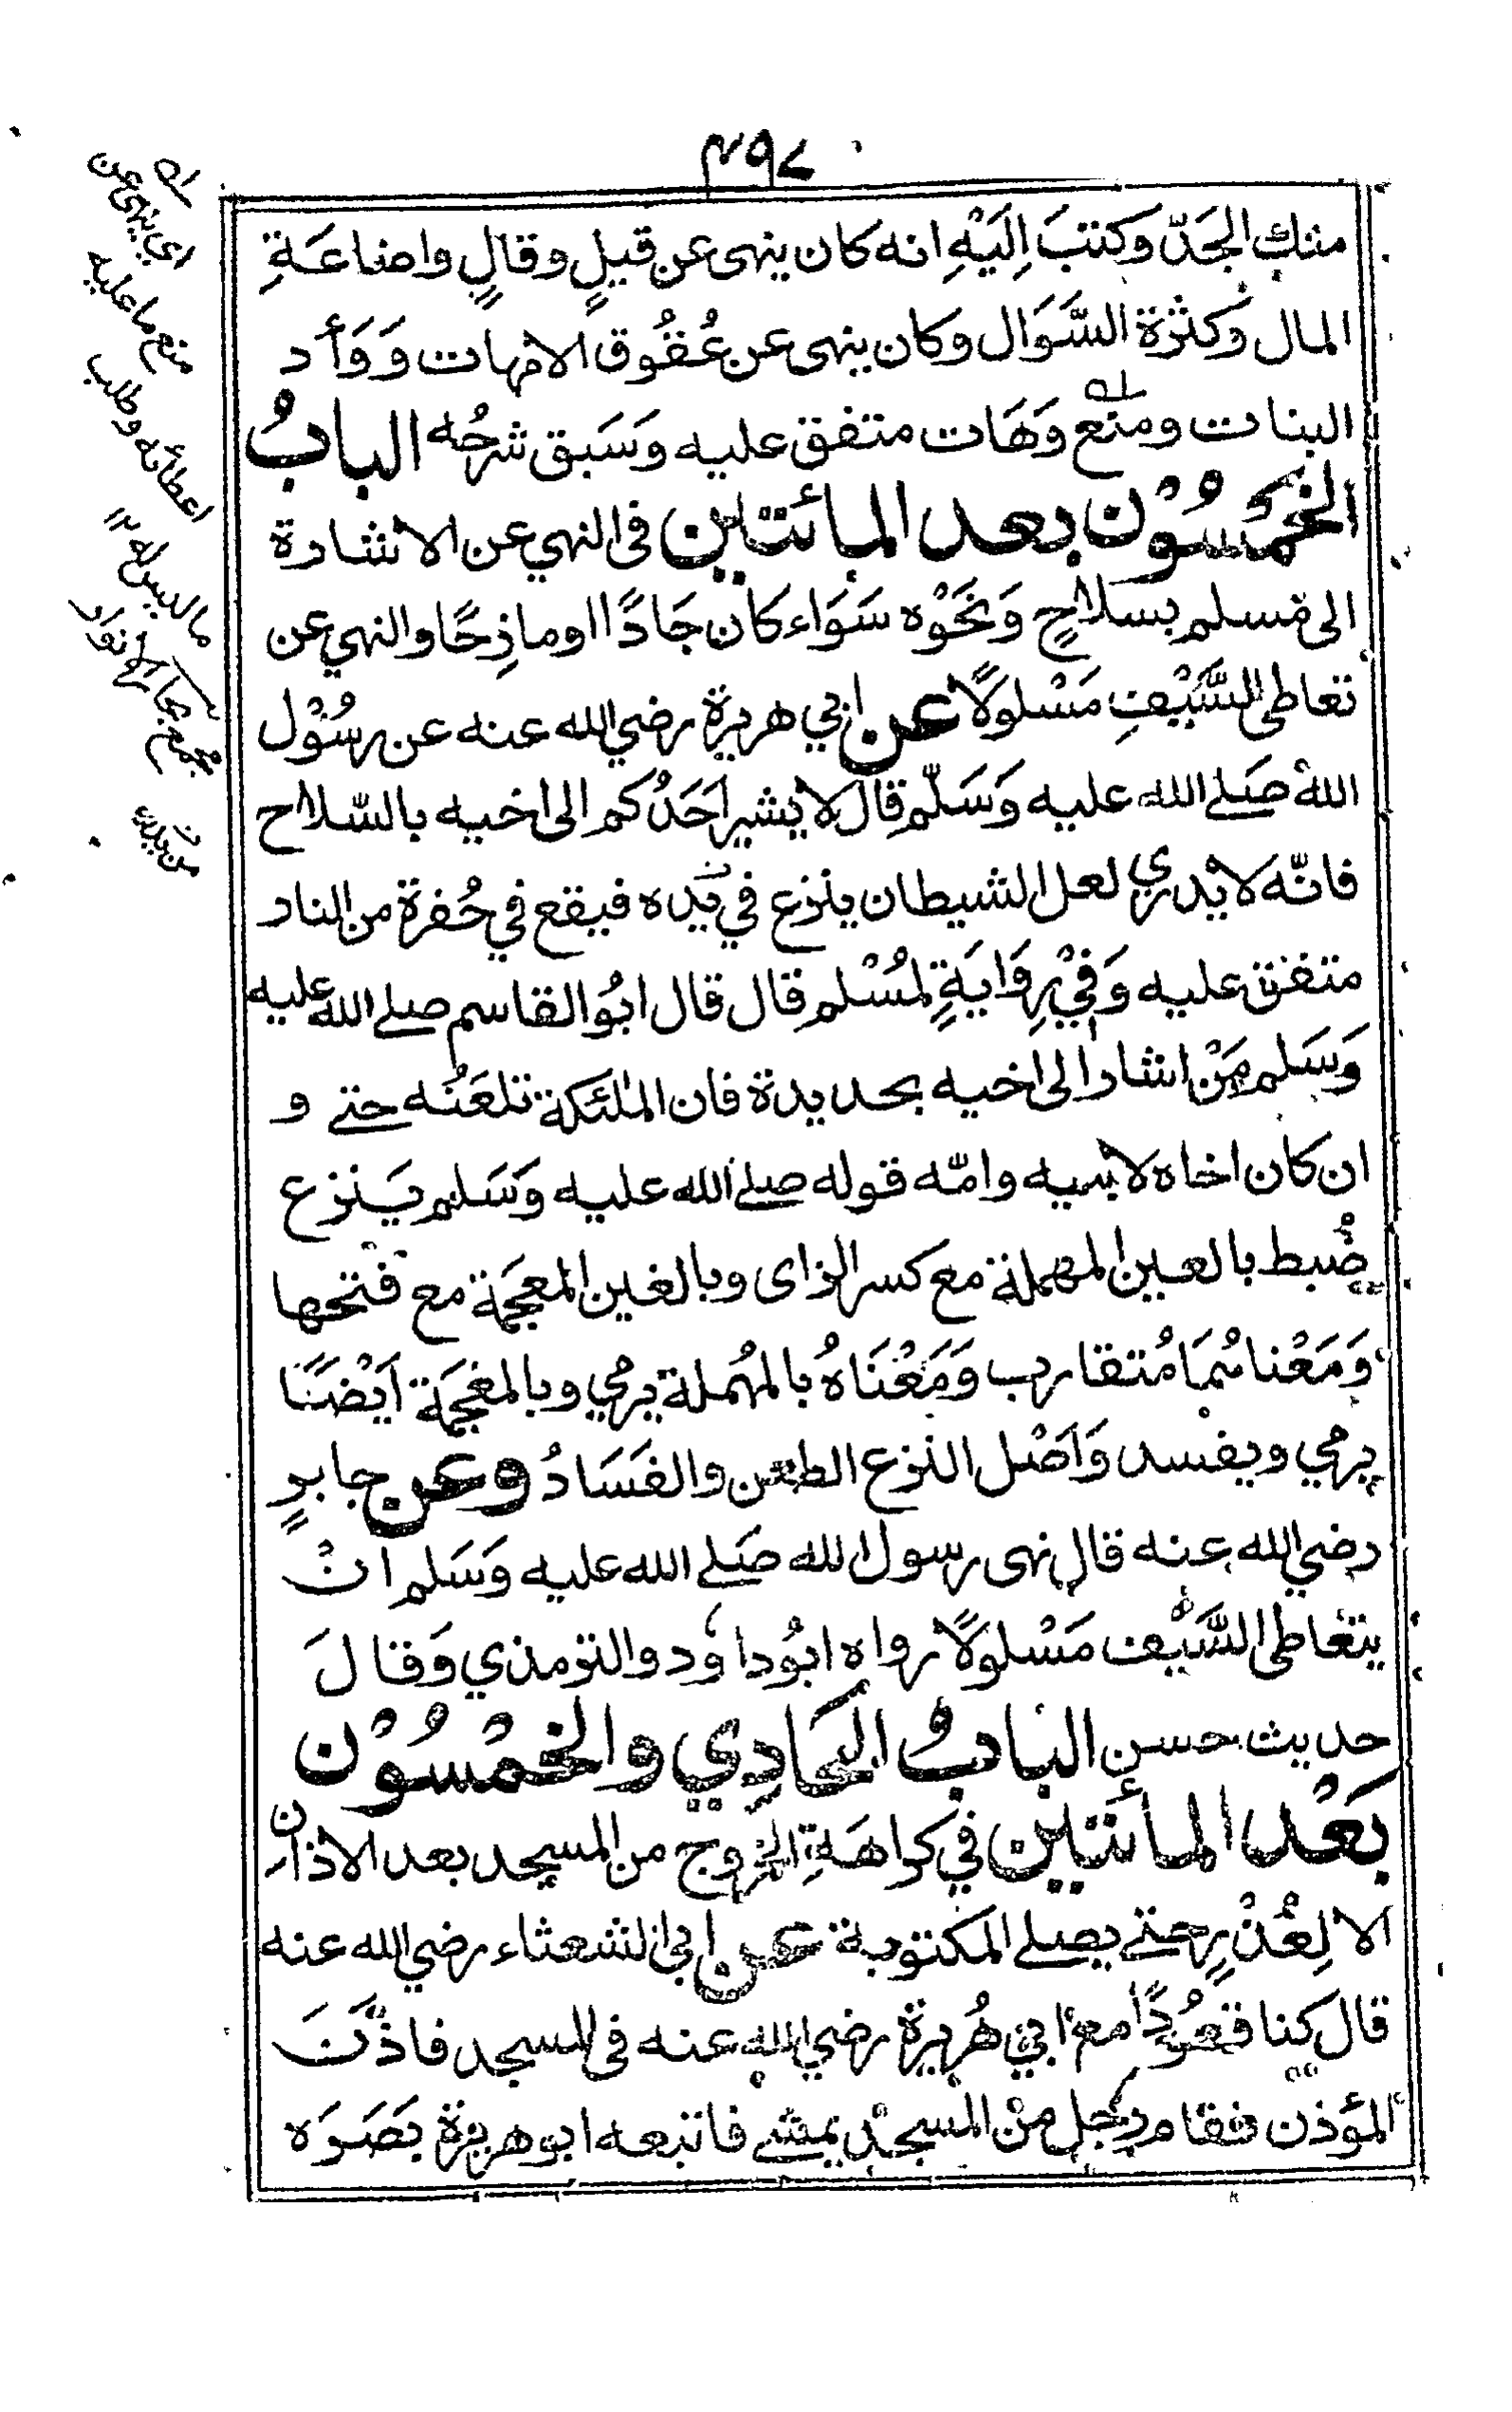 ٣٩٧
منك الجَدّ وكتبَ اِلَيْهِ انه كان ينهى عن قيلٍ وقالٍ واضاعَةِ
المال وَكثرة السَّوَال وكان ينهى عن عُقُوق الامهات وَوَأد
البنات ومنع وَهَات متفق عليه وَسَبق شرحُه البابُ
الخَمْسُوْن بعد المائتين فى النهي عن الاشارة
الى مسلم بسلاحٍ وَنَحْوْه سَوَاء كان جَادًّا او ماذِحًا والنهي عن
تعاطى السَّيْفِ مَسْلولًا عن ابي هريرة رضي الله عنه عن رسُوْل
الله صَلى الله عليه وَسَلَّم قال لا يشير اَحَدُكم الى اخيه بالسّلاح
فانّه لا يدري لعل الشيطان ينزع في يَده فيقع في حُفرة من النار
متفق عليه وَفِيْ رِوَايَةٍ لمُسْلم قال قال ابُو القاسم صلى الله عليه
وَسَلم مَنْ اشار الى اخيه بحديدة فان الملٰئكة تلعَنُه حتى و
ان كان اخاه لابيه وامّه قوله صلى الله عليه وَسَلم يَنزع
ضُبط بالعين المهملة مع كسر الزاى وبالغين المعجَمة مع فتحها
وَمَعْناهُمَا مُتقارب وَمَعْنَاهُ بالمُهملة يرمي وبالمعجَمة اَيْضًا
يرمي ويفسد وَاَصْل النزع الطعن والفَسَادُ وعن جابرٍ
رضي الله عنه قال نهى رسول الله صَلى الله عليه وَسَلم انْ
يتعاطى السَّيْف مَسْلولًا رواه ابُو داوٗد والترمذي وَقالَ
حديث حسن البابُ الحَادِي والخمْسُوْن
بَعْد المائتين في كراهَةِ الخروج من المسجد بعد الاذان
الا لِعُذْرٍ حتى يصلى المكتوبة عن ابي الشعثاء رضي الله عنه
قال كنا قعُودًا مع ابي هُريرة رضي الله عنه فى المسجد فاذّنَ
المؤذن فقام رَجل منْ المسجْد يمشى فاتبعه ابو هريرة بَصَرَه
اى ينهى عن
منع ما عليه
اعطائه وطلب
ما ليس له ١٢